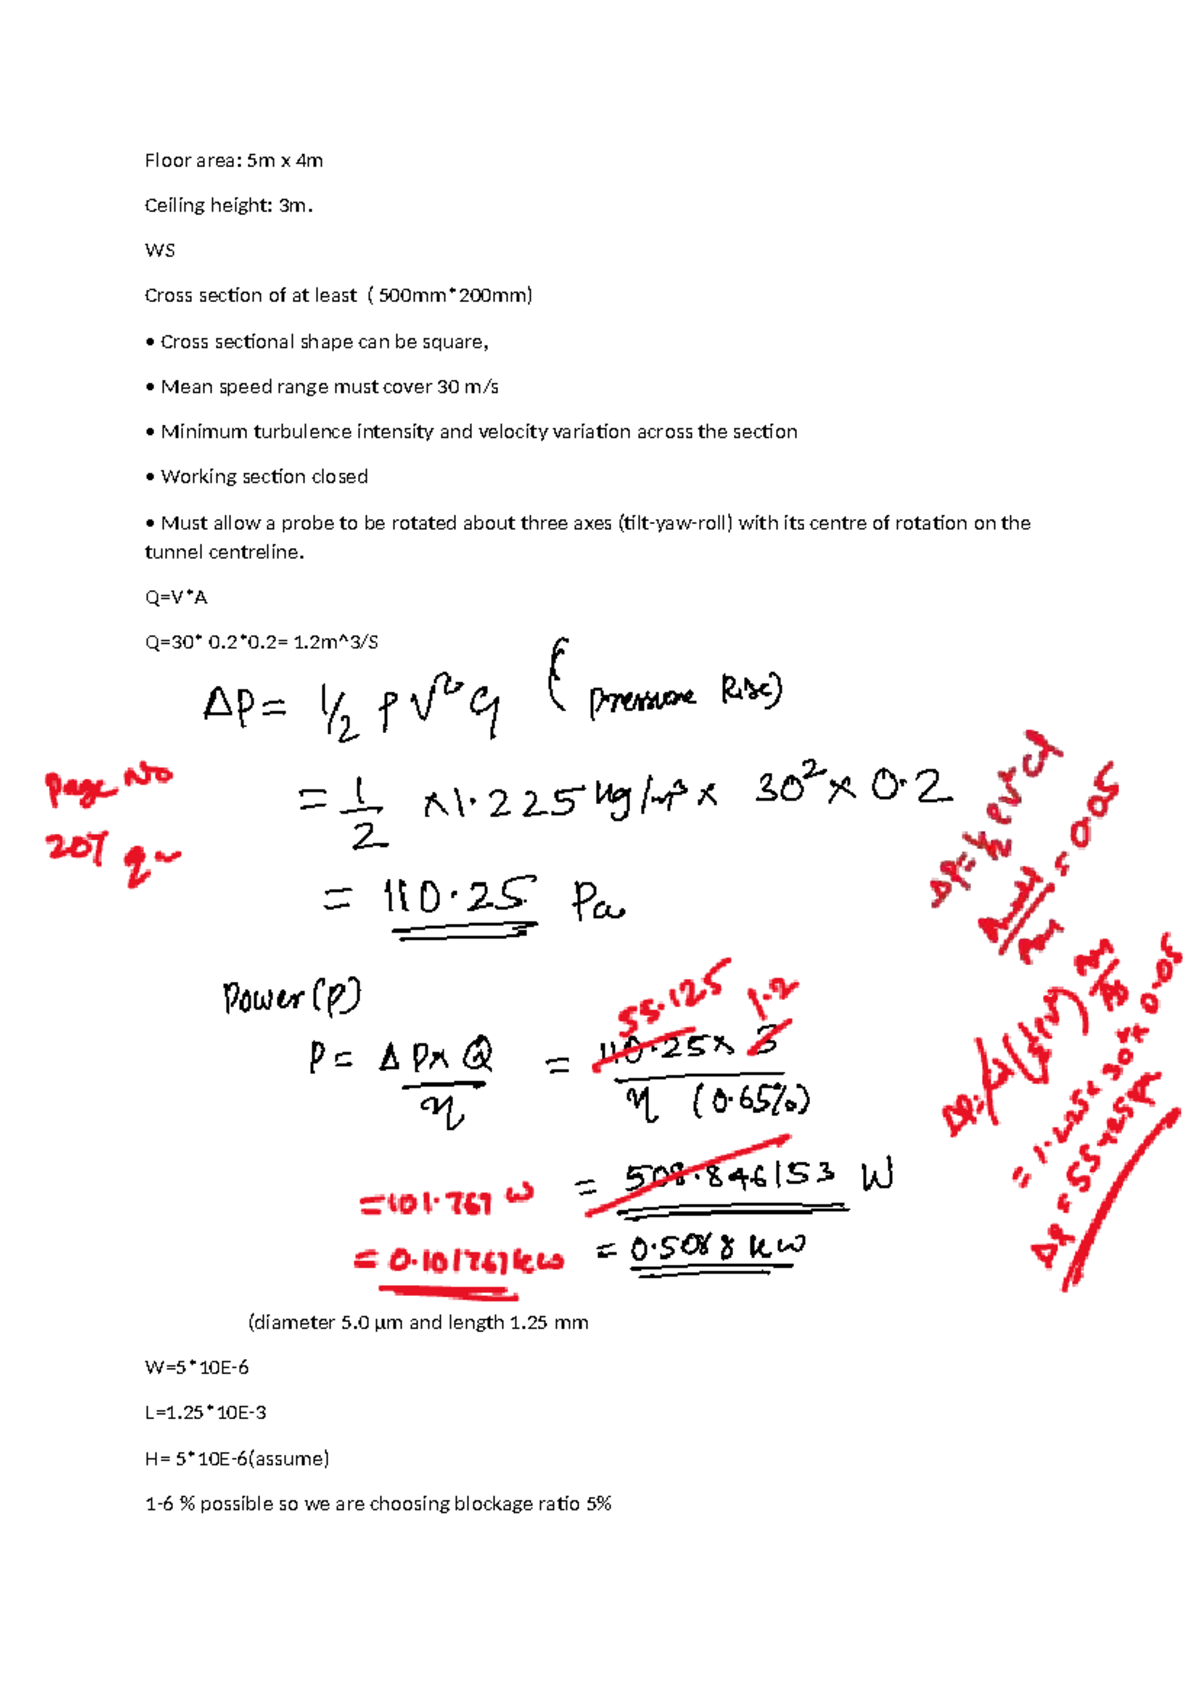 Floor area: 5m x 4m
Ceiling height: 3m.
WS
Cross section of at least  ( 500mm*200mm)
• Cross sectional shape can be square,
• Mean speed range must cover 30 m/s
• Minimum turbulence intensity and velocity variation across the section
• Working section closed
• Must allow a probe to be rotated about three axes (tilt-yaw-roll) with its centre of rotation on the
tunnel centreline.
Q=V*A
Q=30* 0.2*0.2= 1.2m^3/S
ΔP= 1/2 ρV² Cf (pressure Rise)
Page No
207
= 1/2 ×1.225 kg/m³ × 30² × 0.2
= 110.25 Pa
Power(P)
55.125 1.2
P= ΔP× Q / η = 110.25× 3 / η (0.65%)
= 508.846153 W
=101.767 W
= 0.5088 kW
= 0.101767kW
= 0.05
= 1.225× 30²× 0.05
(diameter 5.0 µm and length 1.25 mm
W=5*10E-6
L=1.25*10E-3
H= 5*10E-6(assume)
1-6 % possible so we are choosing blockage ratio 5%